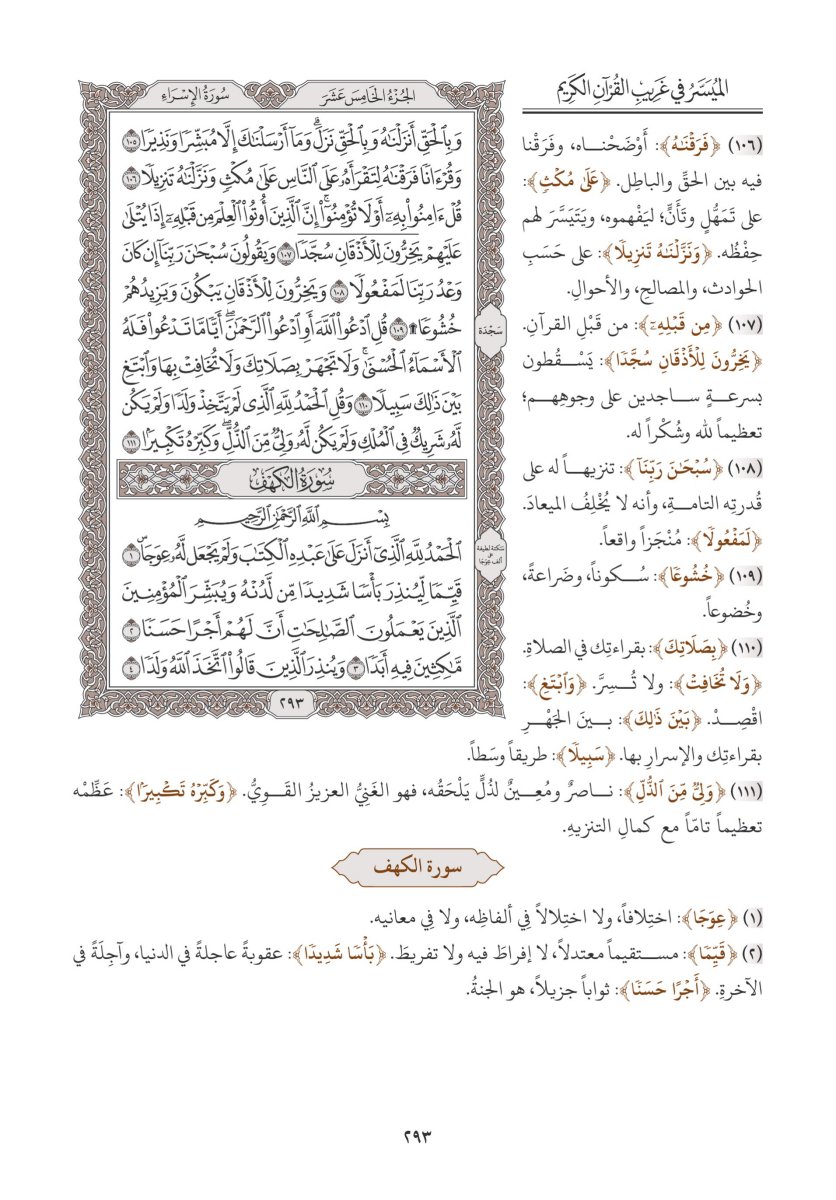 الميسر في غريب القرآن الكريم
سُورَةُ الإِسْرَاءِ
الجُزْءُ الخَامِسَ عَشَرَ
وَبِٱلْحَقِّ أَنزَلْنَٰهُ وَبِٱلْحَقِّ نَزَلَۗ وَمَآ أَرْسَلْنَٰكَ إِلَّا مُبَشِّرًا وَنَذِيرًا ١٠٥
وَقُرْءَانًا فَرَقْنَٰهُ لِتَقْرَأَهُۥ عَلَى ٱلنَّاسِ عَلَىٰ مُكْثٍ وَنَزَّلْنَٰهُ تَنزِيلًا ١٠٦
قُلْ ءَامِنُوا۟ بِهِۦٓ أَوْ لَا تُؤْمِنُوٓا۟ۚ إِنَّ ٱلَّذِينَ أُوتُوا۟ ٱلْعِلْمَ مِن قَبْلِهِۦٓ إِذَا يُتْلَىٰ
عَلَيْهِمْ يَخِرُّونَ لِلْأَذْقَانِ سُجَّدًا ١٠٧ وَيَقُولُونَ سُبْحَٰنَ رَبِّنَآ إِن كَانَ
وَعْدُ رَبِّنَا لَمَفْعُولًا ١٠٨ وَيَخِرُّونَ لِلْأَذْقَانِ يَبْكُونَ وَيَزِيدُهُمْ
خُشُوعًا۩ ١٠٩ قُلِ ٱدْعُوا۟ ٱللَّهَ أَوِ ٱدْعُوا۟ ٱلرَّحْمَٰنَۖ أَيًّا مَّا تَدْعُوا۟ فَلَهُ
ٱلْأَسْمَآءُ ٱلْحُسْنَىٰۚ وَلَا تَجْهَرْ بِصَلَاتِكَ وَلَا تُخَافِتْ بِهَا وَٱبْتَغِ
بَيْنَ ذَٰلِكَ سَبِيلًا ١١٠ وَقُلِ ٱلْحَمْدُ لِلَّهِ ٱلَّذِى لَمْ يَتَّخِذْ وَلَدًا وَلَمْ يَكُن
لَّهُۥ شَرِيكٌ فِى ٱلْمُلْكِ وَلَمْ يَكُن لَّهُۥ وَلِىٌّ مِّنَ ٱلذُّلِّۖ وَكَبِّرْهُ تَكْبِيرًۢا ١١١
سُورَةُ الكَهْفِ
بِسْمِ ٱللَّهِ ٱلرَّحْمَٰنِ ٱلرَّحِيمِ
ٱلْحَمْدُ لِلَّهِ ٱلَّذِىٓ أَنزَلَ عَلَىٰ عَبْدِهِ ٱلْكِتَٰبَ وَلَمْ يَجْعَل لَّهُۥ عِوَجَاۜ ١
قَيِّمًا لِّيُنذِرَ بَأْسًا شَدِيدًا مِّن لَّدُنْهُ وَيُبَشِّرَ ٱلْمُؤْمِنِينَ
ٱلَّذِينَ يَعْمَلُونَ ٱلصَّٰلِحَٰتِ أَنَّ لَهُمْ أَجْرًا حَسَنًا ٢
مَّٰكِثِينَ فِيهِ أَبَدًا ٣ وَيُنذِرَ ٱلَّذِينَ قَالُوا۟ ٱتَّخَذَ ٱللَّهُ وَلَدًا ٤
سَجْدَة
سكتة لطيفة
على
ألف عوجا
٢٩٣
(١٠٦) ﴿فَرَقْنَٰهُ﴾: أَوْضَحْنـاه، وفرَقْنا
فيه بين الحقِّ والباطِلِ. ﴿عَلَىٰ مُكْثٍ﴾:
على تَمَهُّلٍ وتَأَنٍّ؛ ليَفْهموه، ويَتَيَسَّرَ لهم
حِفْظُه. ﴿وَنَزَّلْنَٰهُ تَنزِيلًا﴾: على حَسَبِ
الحوادثِ، والمصالحِ، والأحوالِ.
(١٠٧) ﴿مِن قَبْلِهِۦٓ﴾: من قَبْلِ القرآنِ.
﴿يَخِرُّونَ لِلْأَذْقَانِ سُجَّدًا﴾: يَسْـقُطون
بسرعةٍ سـاجدين على وجوهِهـم؛
تعظيماً لله وشُكْراً له.
(١٠٨) ﴿سُبْحَٰنَ رَبِّنَآ﴾: تنزيهـاً له على
قُدرتِه التامـةِ، وأنه لا يُخْلِفُ الميعادَ.
﴿لَمَفْعُولًا﴾: مُنْجَزاً واقعاً.
(١٠٩) ﴿خُشُوعًا﴾: سُـكوناً، وضَراعةً،
وخُضوعاً.
(١١٠) ﴿بِصَلَاتِكَ﴾: بقراءتِك في الصلاةِ.
﴿وَلَا تُخَافِتْ﴾: ولا تُـسِرَّ. ﴿وَٱبْتَغِ﴾:
اقْصِدْ. ﴿بَيْنَ ذَٰلِكَ﴾: بـينَ الجَهْـرِ
بقراءتِك والإسرارِ بها. ﴿سَبِيلًا﴾: طريقاً وسَطاً.
(١١١) ﴿وَلِىٌّ مِّنَ ٱلذُّلِّ﴾: نـاصرٌ ومُعِـينٌ لذُلٍّ يَلْحَقُه، فهو الغَنِيُّ العزيزُ القَـوِيُّ. ﴿وَكَبِّرْهُ تَكْبِيرًۢا﴾: عَظِّمْه
تعظيماً تامّاً مع كمالِ التنزيهِ.
سورة الكهف
(١) ﴿عِوَجَا﴾: اختِلافاً، ولا اختِلالاً فِي ألفاظِه، ولا فِي معانيه.
(٢) ﴿قَيِّمًا﴾: مسـتقيماً معتدلاً، لا إفراطَ فيه ولا تفريطَ. ﴿بَأْسًا شَدِيدًا﴾: عقوبةً عاجلةً في الدنيا، وآجِلَةً في
الآخرةِ. ﴿أَجْرًا حَسَنًا﴾: ثواباً جزيلاً، هو الجنةُ.
٢٩٣